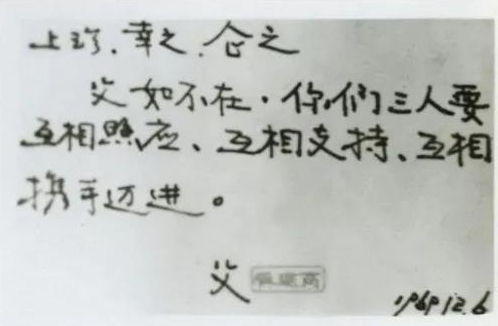 上珍.幸之.仑之
父如不在.你们三人要
互相照应、互相支持、互相
携手迈进。
父
1969 12.6